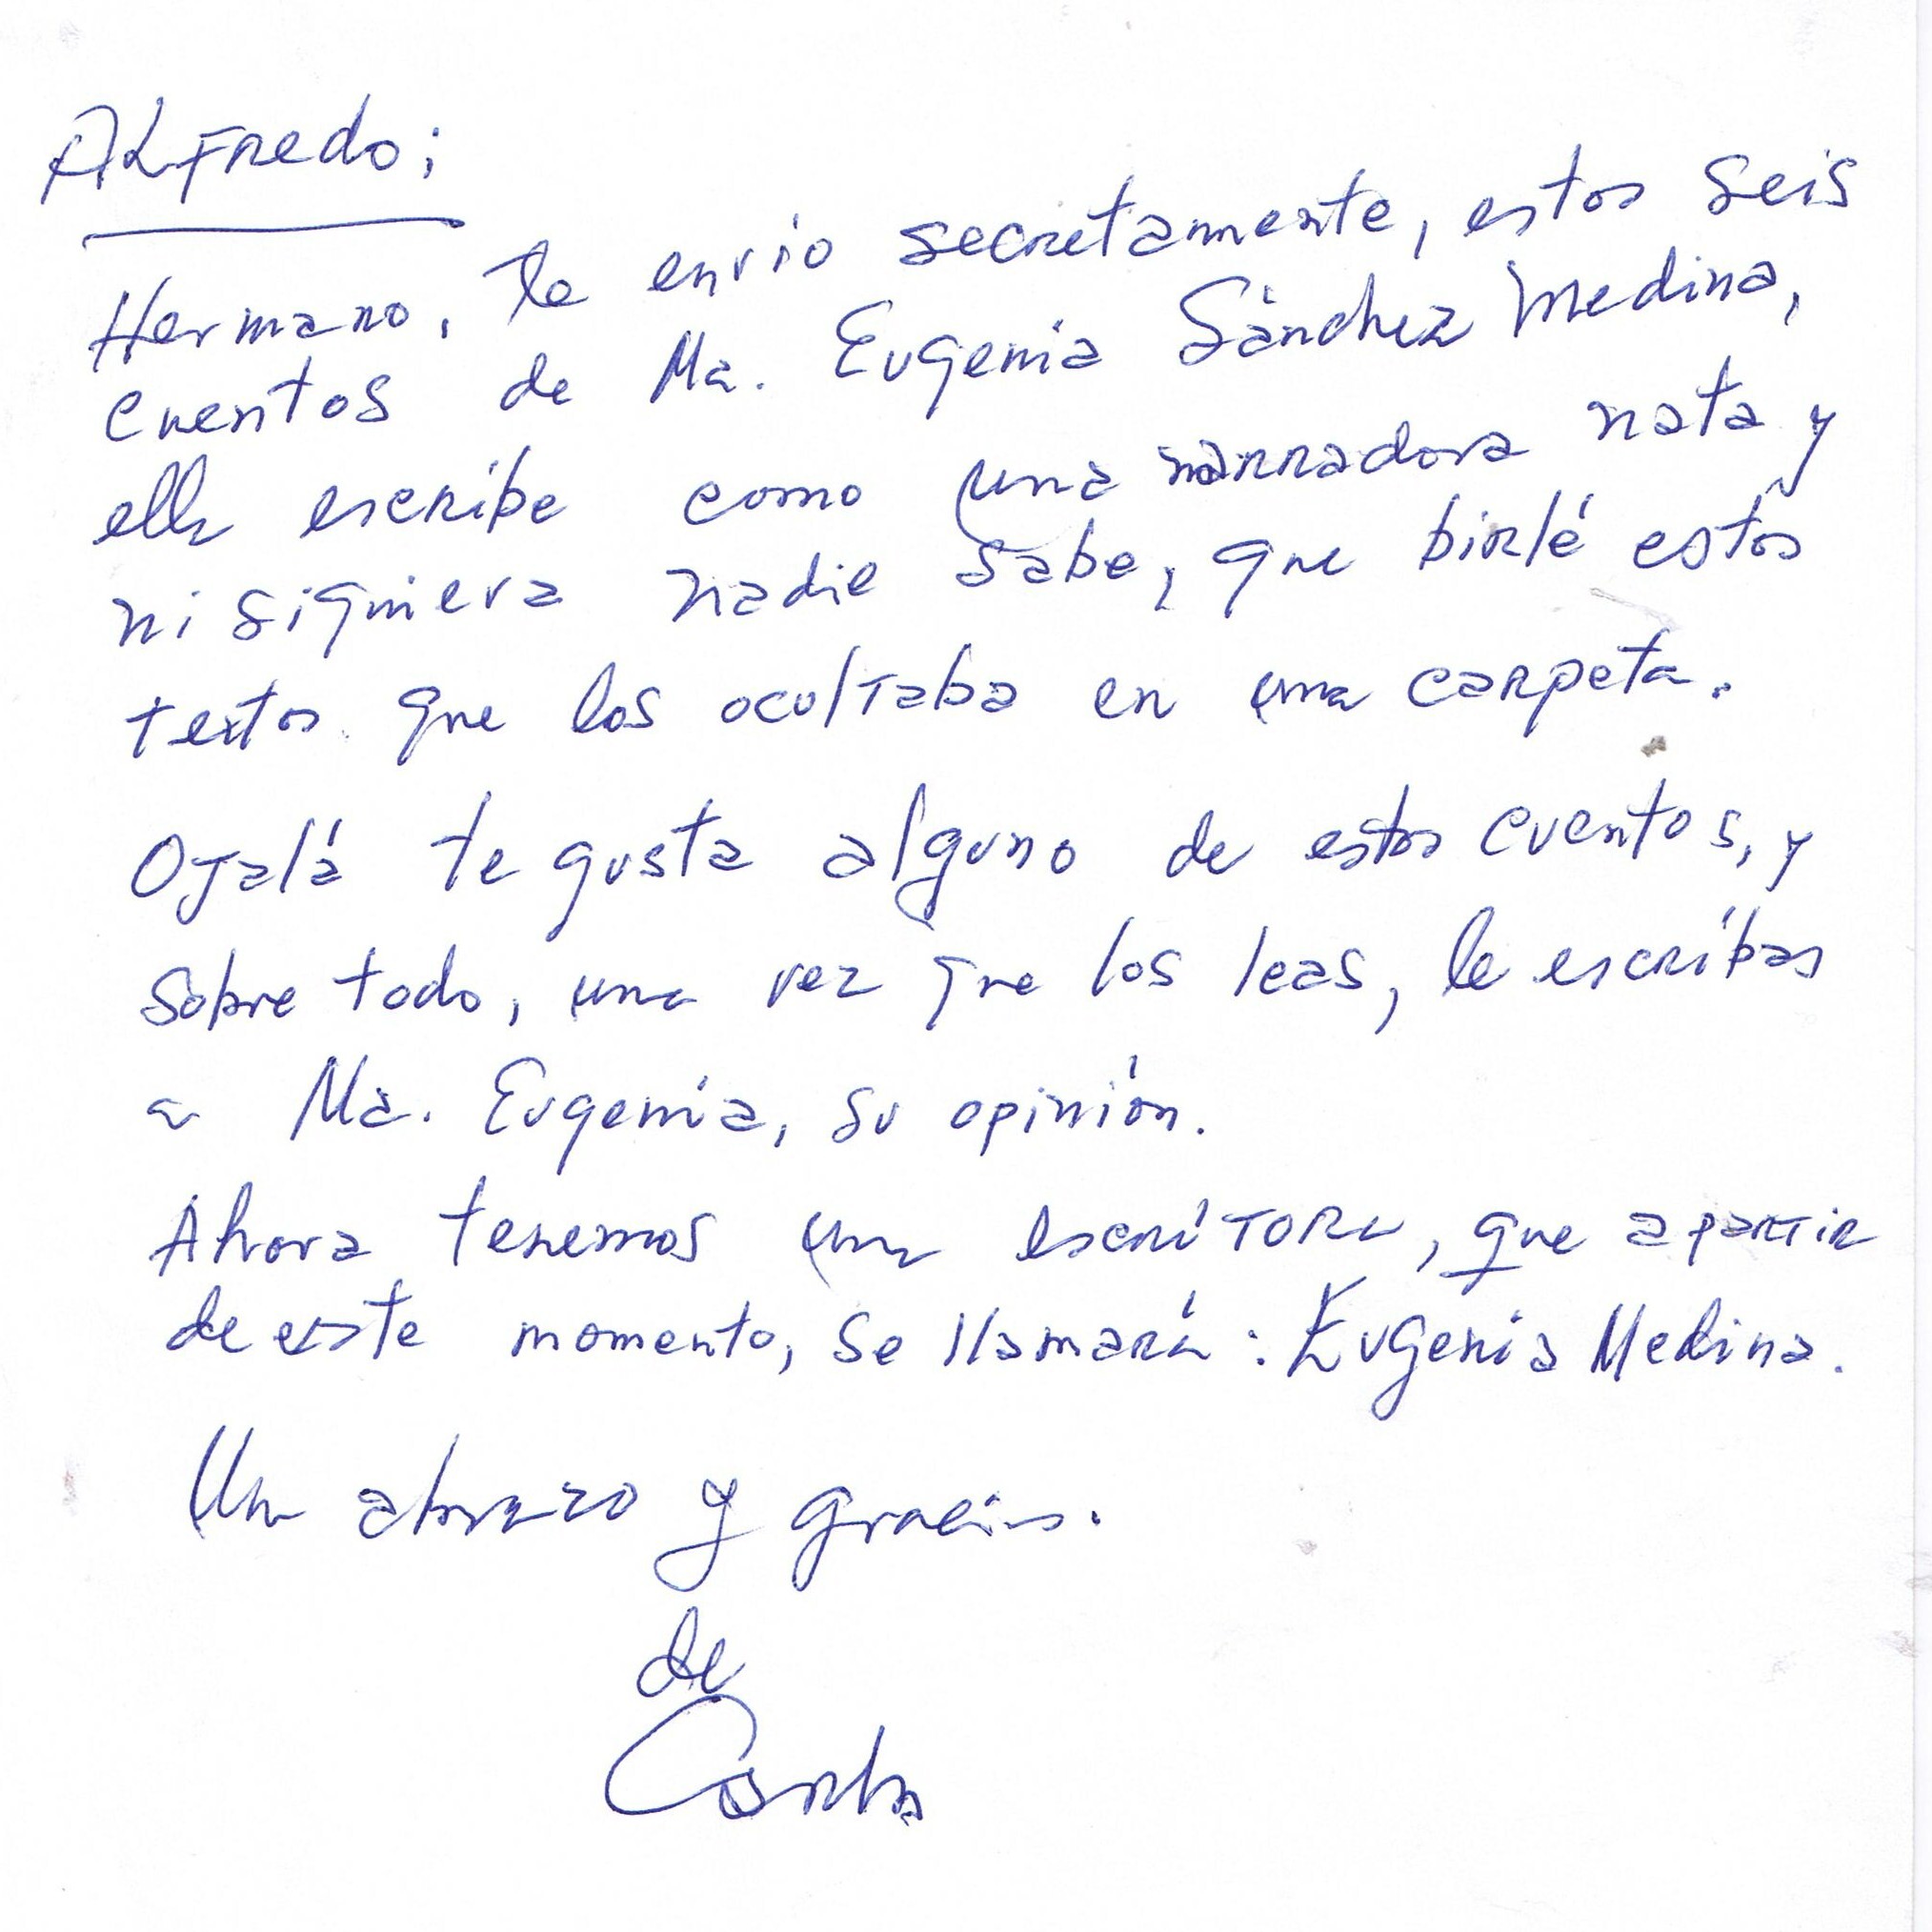 Alfredo;
Hermano, te envio secretamente, estos seis
cuentos de Ma. Eugenia Sánchez Medina,
ella escribe como una narradora nata y
ni siquiera nadie sabe, que birlé estos
textos que los ocultaba en una carpeta.
Ojalá te gusta alguno de estos cuentos, y
sobre todo, una vez que los leas, le escribas
a Ma. Eugenia, su opinión.
Ahora tenemos una escritora, que a partir
de este momento, se llamará: Eugenia Medina.
Un abrazo y gracias.
de
Carlos